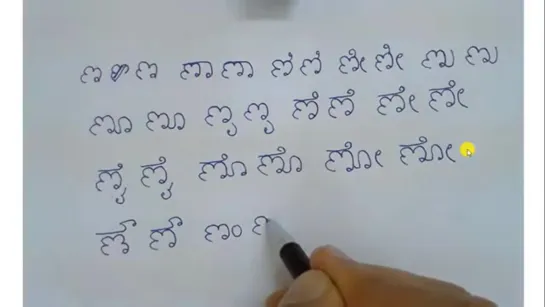 ಣ ಣ ಣಾ ಣಾ ಣಿ ಣಿ ಣೀ ಣೀ ಣು ಣು
ಣೂ ಣೂ ಣೃ ಣೃ ಣೆ ಣೆ ಣೇ ಣೇ
ಣೈ ಣೈ ಣೊ ಣೊ ಣೋ ಣೋ
ಣೌ ಣೌ ಣಂ